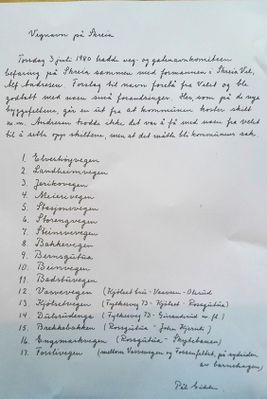 Vegnavn på Skreia
Torsdag 3. juli 1980 hadde veg- og gatenavnkomiteen
befaring på Skreia sammen med formannen i Skreia Vel,
Alf Andresen. Forslag til navn forelå fra Velet og ble
godtatt med noen små forandringer. Her, som på de nye
byggefeltene, går en ut fra at kommunen koster skilt
m.m. Andresen trodde ikke det var å få med noen fra velet
til å sette opp skiltene, men at det måtte bli kommunens sak.
1. Elverhøyvegen
2. Landheimvegen
3. Jerikovegen
4. Meierivegen
5. Stasjonsvegen
6. Storengvegen
7. Steinsvevegen
8. Bakkevegen
9. Bernsgutua
10. Bernvegen
11. Badstuvegen
12. Vassvevegen (Kjölset bru - Vaassen - Olsrud
13. Kjölsetvegen (Fylkesveg 73 - Kjölset - Rossgutua)
14. Dulsrudenga (Fylkesveg 73 - m. fl.)
15. Brekkebakken (Rossgutua - John Hjernli)
16. Engmarkvegen (Rossgutua - Skytebanen)
17. Fosslivegen (mellom Vassvevegen og Fossenfeltet, på nordsiden
av barnehagen)
Pål